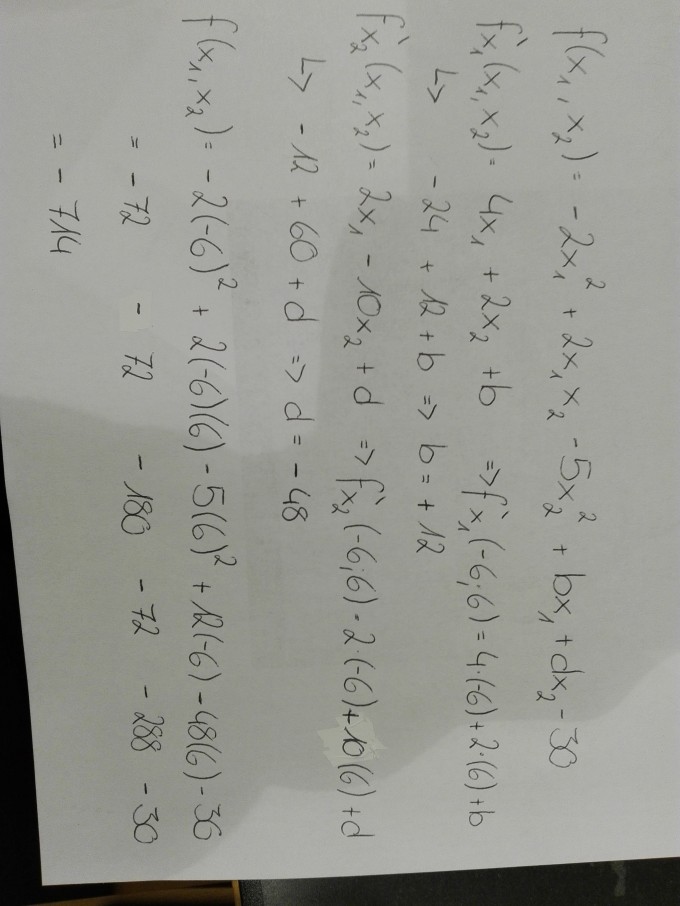 f(x₁, x₂) = -2x₁² + 2x₁x₂ - 5x₂² + bx₁ + dx₂ - 30
f`x₁(x₁, x₂) = 4x₁ + 2x₂ + b => f`x₁(-6, 6) = 4·(-6) + 2·(6) + b
↳ -24 + 12 + b => b = +12
f`x₂(x₁, x₂) = 2x₁ - 10x₂ + d => f`x₂(-6; 6) = 2·(-6) + 10(6) + d
↳ - 12 + 60 + d => d = - 48
f(x₁, x₂) = -2(-6)² + 2(-6)(6) - 5(6)² + 12(-6) - 48(6) - 30
= - 72 - 72 - 180 - 72 - 288 - 30
= - 714